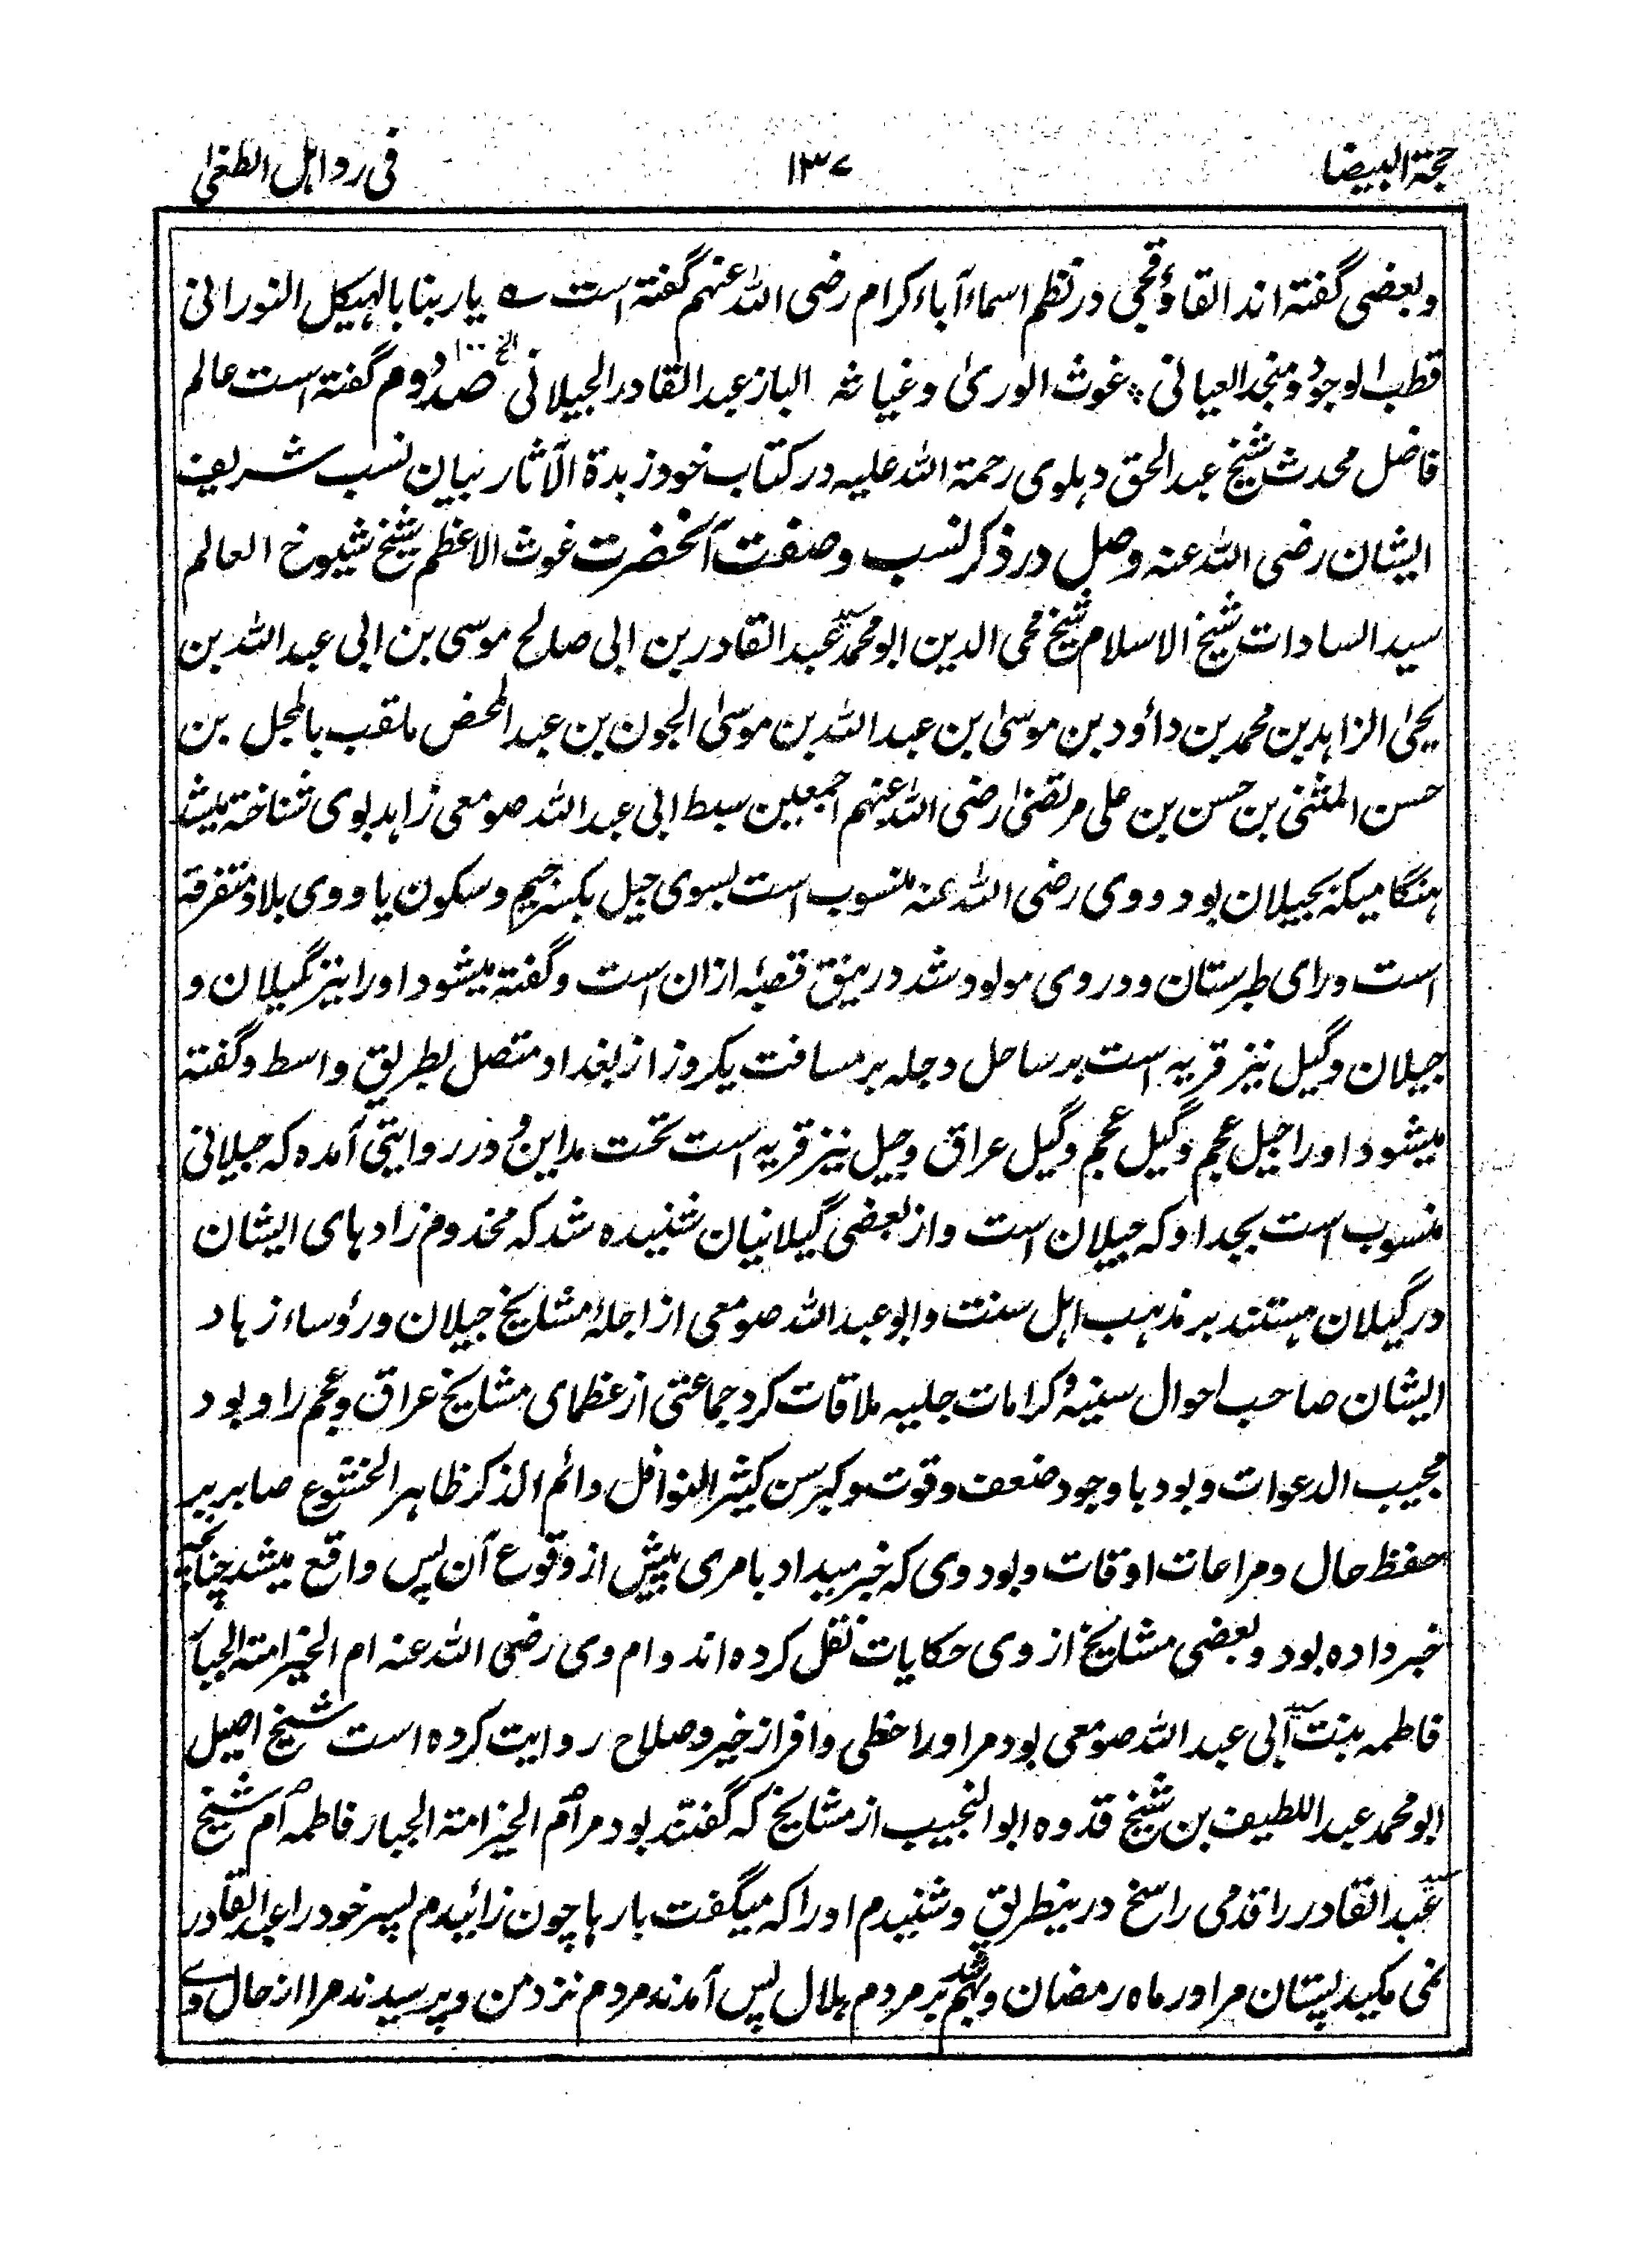 حجة البیضا ۱۳۷ فی رد اہل الطغیٰ
وبعضی گفتہ اند القاوقجی در نظم اسماء آباء کرام رضی اللہ عنہم گفتہ است یا ربنا بالہیکل النورانی
قطب الوجود ومنجد العیانی غوث الوریٰ وغیاثہ الباز عبد القادر الجیلانی الخ ۱۰۰ ص دوم گفتہ است عالم
فاضل محدث شیخ عبد الحق دہلوی رحمة اللہ علیہ در کتاب خود زبدة الآثار بیان نسب شریف
ایشان رضی اللہ عنہ وصل در ذکر نسب وصفت آنحضرت غوث الاعظم شیخ شیوخ العالم
سید السادات شیخ الاسلام شیخ محی الدین ابو محمد سید عبد القادر بن ابی صالح موسی بن ابی عبد اللہ بن
یحیٰی الزاہد بن محمد بن داؤد بن موسیٰ بن عبد اللہ بن موسیٰ الجون بن عبد المحض ملقب بالمجل بن
حسن المثنیٰ بن حسن بن علی مرتضیٰ رضی اللہ عنہم اجمعین سبط ابی عبد اللہ صومعی زاہد بوی شناختہ میشد
ہنگامیکہ بجیلان بود ووی رضی اللہ عنہ منسوب است بسوی جیل بکسر جیم وسکون یا ووی بلاد متفرقہ
است ورای طبرستان ودر وی مولود شد در نیق قصبہ ازان است وگفتہ میشود اورا نیز گیلان و
جیلان وگیل نیز قریہ است بر ساحل دجلہ بر مسافت یکروز از بغداد متصل بطریق واسط وگفتہ
میشود اورا جیل عجم وگیل عجم وگیل عراق وجیل نیز قریہ است تحت مداین ودر روایتی آمدہ کہ جیلانی
منسوب است بجد او کہ جیلان است واز بعضی گیلانیان شنیدہ شد کہ مخدوم زادہای ایشان
در گیلان ہستند بر مذہب اہل سنت وابو عبد اللہ صومعی از اجلۂ مشایخ جیلان ورؤساء زہاد
ایشان صاحب احوال سنیہ وکرامات جلیہ ملاقات کرد جماعتی از عظمای مشایخ عراق وعجم را وبود
مجیب الدعوات وبود باوجود ضعف وقوت وکبر سن کثیر النوافل دائم الذکر ظاہر الخشوع صابر بر
حفظ حال ومراعات اوقات وبود وی کہ خبر میداد بامری پیش از وقوع آن پس واقع میشد چنانچہ
خبر دادہ بود وبعضی مشایخ از وی حکایات نقل کردہ اند وام وی رضی اللہ عنہ ام الخیر امة الجبار
فاطمہ بنت سید ابی عبد اللہ صومعی بود مر اورا حظی وافر از خیر وصلاح روایت کردہ است شیخ اصیل
ابو محمد عبد اللطیف بن شیخ قدوہ ابو النجیب از مشایخ کہ گفتند بود مر ام الخیر امة الجبار فاطمہ ام شیخ
سید عبد القادر را قدمی راسخ درینطریق وشنیدم اورا کہ میگفت بارہا چون زائیدم پسر خود را عبد القادر
نمی مکید پستان مرا در ماہ رمضان ومبہم شد بر مردم ہلال پس آمدند مردم نزد من وپرسیدند مرا از حال وی